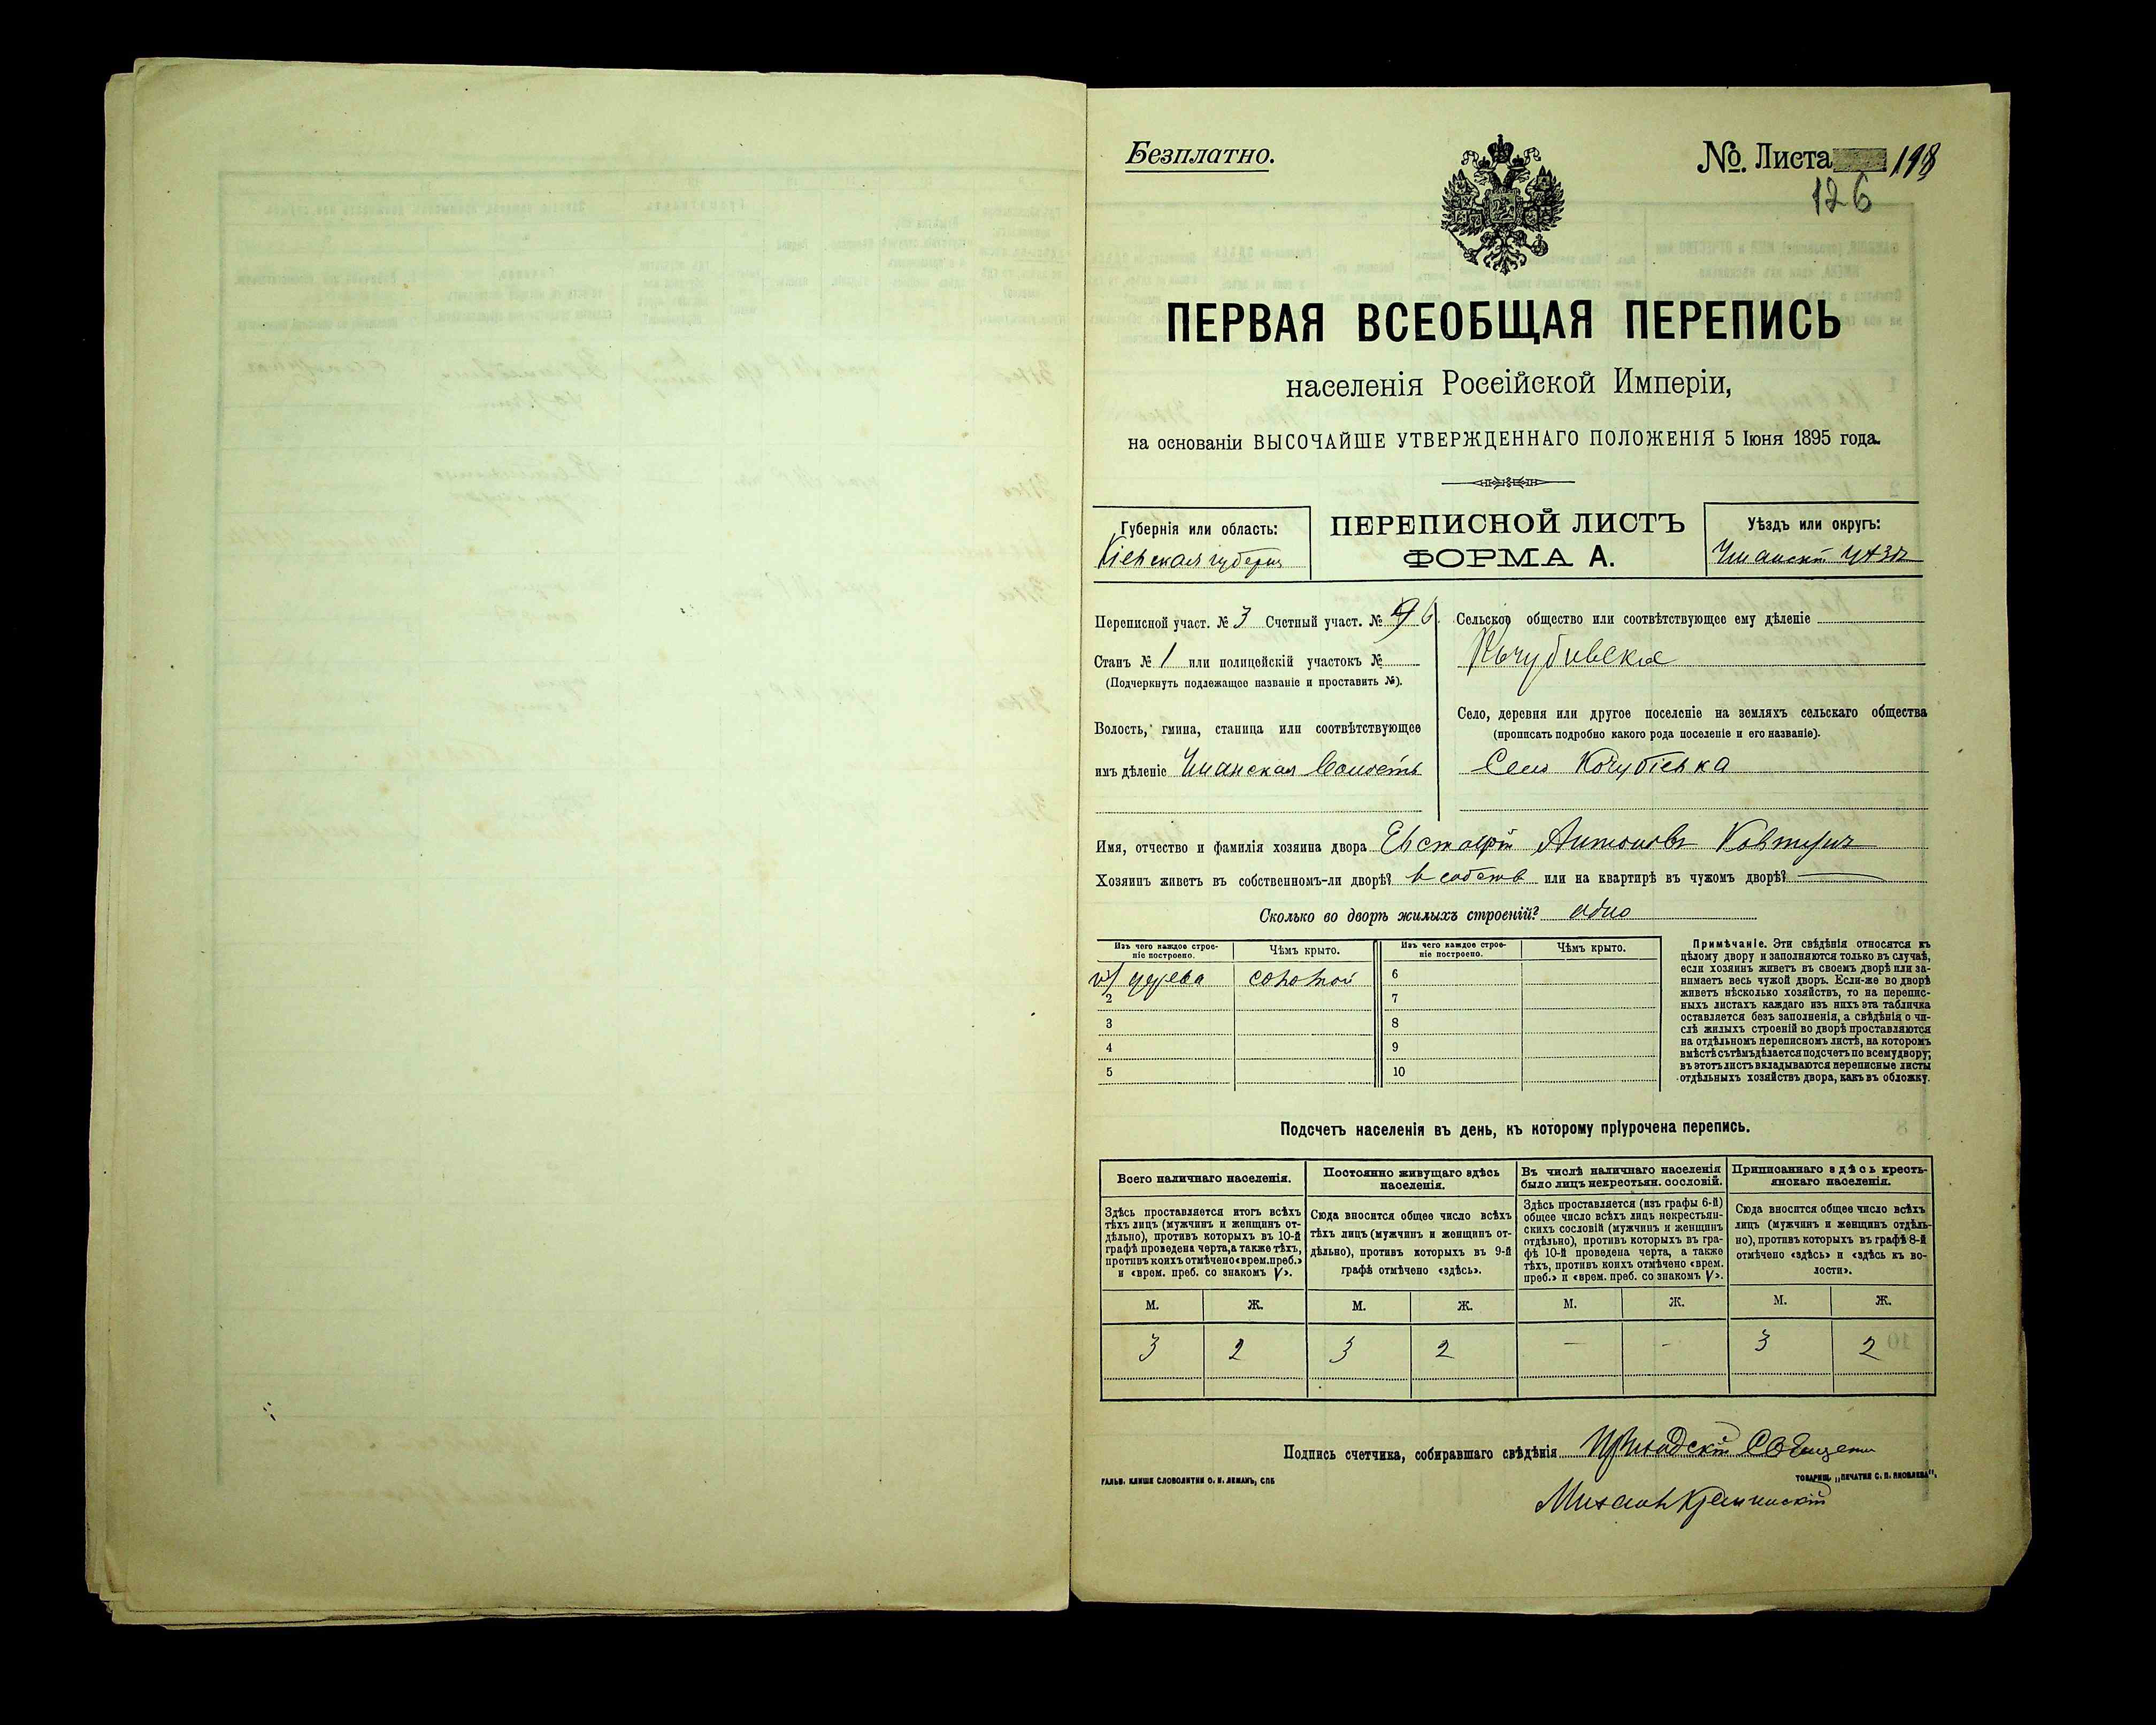 Безплатно.
№. Листа 198
126
ПЕРВАЯ ВСЕОБЩАЯ ПЕРЕПИСЬ
населенія Россійской Имперіи,
на основаніи ВЫСОЧАЙШЕ УТВЕРЖДЕННАГО ПОЛОЖЕНІЯ 5 Іюня 1895 года.
Губернія или область:
Кіевская губернія
ПЕРЕПИСНОЙ ЛИСТЪ
ФОРМА А.
Уѣздъ или округъ:
Уманскій уѣздъ
Переписной участ. № 3 Счетный участ. № 96
Станъ № 1 или полицейскій участокъ №
(Подчеркнуть подлежащее названіе и проставить №).
Волость, гмина, станица или соотвѣтствующее
имъ дѣленіе Уманская волость
Сельское общество или соотвѣтствующее ему дѣленіе
Село, деревня или другое поселеніе на земляхъ сельскаго общества
(прописать подробно какого рода поселеніе и его названіе).
Село Кочубіевка
Имя, отчество и фамилія хозяина двора Евстафій Антоновъ
Хозяинъ живетъ въ собственномъ-ли дворѣ? в собств или на квартирѣ въ чужомъ дворѣ?
Сколько во дворѣ жилыхъ строеній? одно
Изъ чего каждое строе-
ніе построено.
Чѣмъ крыто.
Изъ чего каждое строе-
ніе построено.
Чѣмъ крыто.
из дерева соломой 6
2 7
3 8
4 9
5 10
Примѣчаніе. Эти свѣдѣнія относятся къ
цѣлому двору и заполняются только въ случаѣ,
если хозяинъ живетъ въ своемъ дворѣ или за-
нимаетъ весь чужой дворъ. Если-же во дворѣ
живетъ нѣсколько хозяйствъ, то на перепис-
ныхъ листахъ каждаго изъ нихъ эта табличка
оставляется безъ заполненія, а свѣдѣнія о чи-
слѣ жилыхъ строеній во дворѣ проставляются
на отдѣльномъ переписномъ листѣ, на которомъ
вмѣстѣ съ тѣмъ дѣлается подсчетъ по всему двору;
въ этотъ листъ вкладываются переписные листы
отдѣльныхъ хозяйствъ двора, какъ въ обложку.
Подсчетъ населенія въ день, къ которому пріурочена перепись.
Всего наличнаго населенія.
Здѣсь проставляется итогъ всѣхъ
тѣхъ лицъ (мужчинъ и женщинъ от-
дѣльно), противъ которыхъ въ 10-й
графѣ проведена черта, а также тѣхъ,
противъ коихъ отмѣчено «врем. преб.»
и «врем. преб. со знакомъ V».
Постоянно живущаго здѣсь
населенія.
Сюда вносится общее число всѣхъ
тѣхъ лицъ (мужчинъ и женщинъ от-
дѣльно), противъ которыхъ въ 9-й
графѣ отмѣчено «здѣсь».
Въ числѣ наличнаго населенія
было лицъ некрестьян. сословій.
Здѣсь проставляется (изъ графы 6-й)
общее число всѣхъ лицъ некрестьян-
скихъ сословій (мужчинъ и женщинъ
отдѣльно), противъ которыхъ въ гра-
фѣ 10-й проведена черта, а также
тѣхъ, противъ коихъ отмѣчено «врем.
преб.» и «врем. преб. со знакомъ V».
Приписаннаго здѣсь кресть-
янскаго населенія.
Сюда вносится общее число всѣхъ
лицъ (мужчинъ и женщинъ отдѣль-
но), противъ которыхъ въ графѣ 8-й
отмѣчено «здѣсь» и «здѣсь къ во-
лости».
М. Ж. М. Ж. М. Ж. М. Ж.
3 2 3 2 — - 3 2
Подпись счетчика, собиравшаго свѣдѣнія
ГАЛЬВ. КЛИШЕ СЛОВОЛИТНИ О. И. ЛЕМАНЪ, СПБ
ТОВАРИЩ. „ПЕЧАТНЯ С. П. ЯКОВЛЕВА".